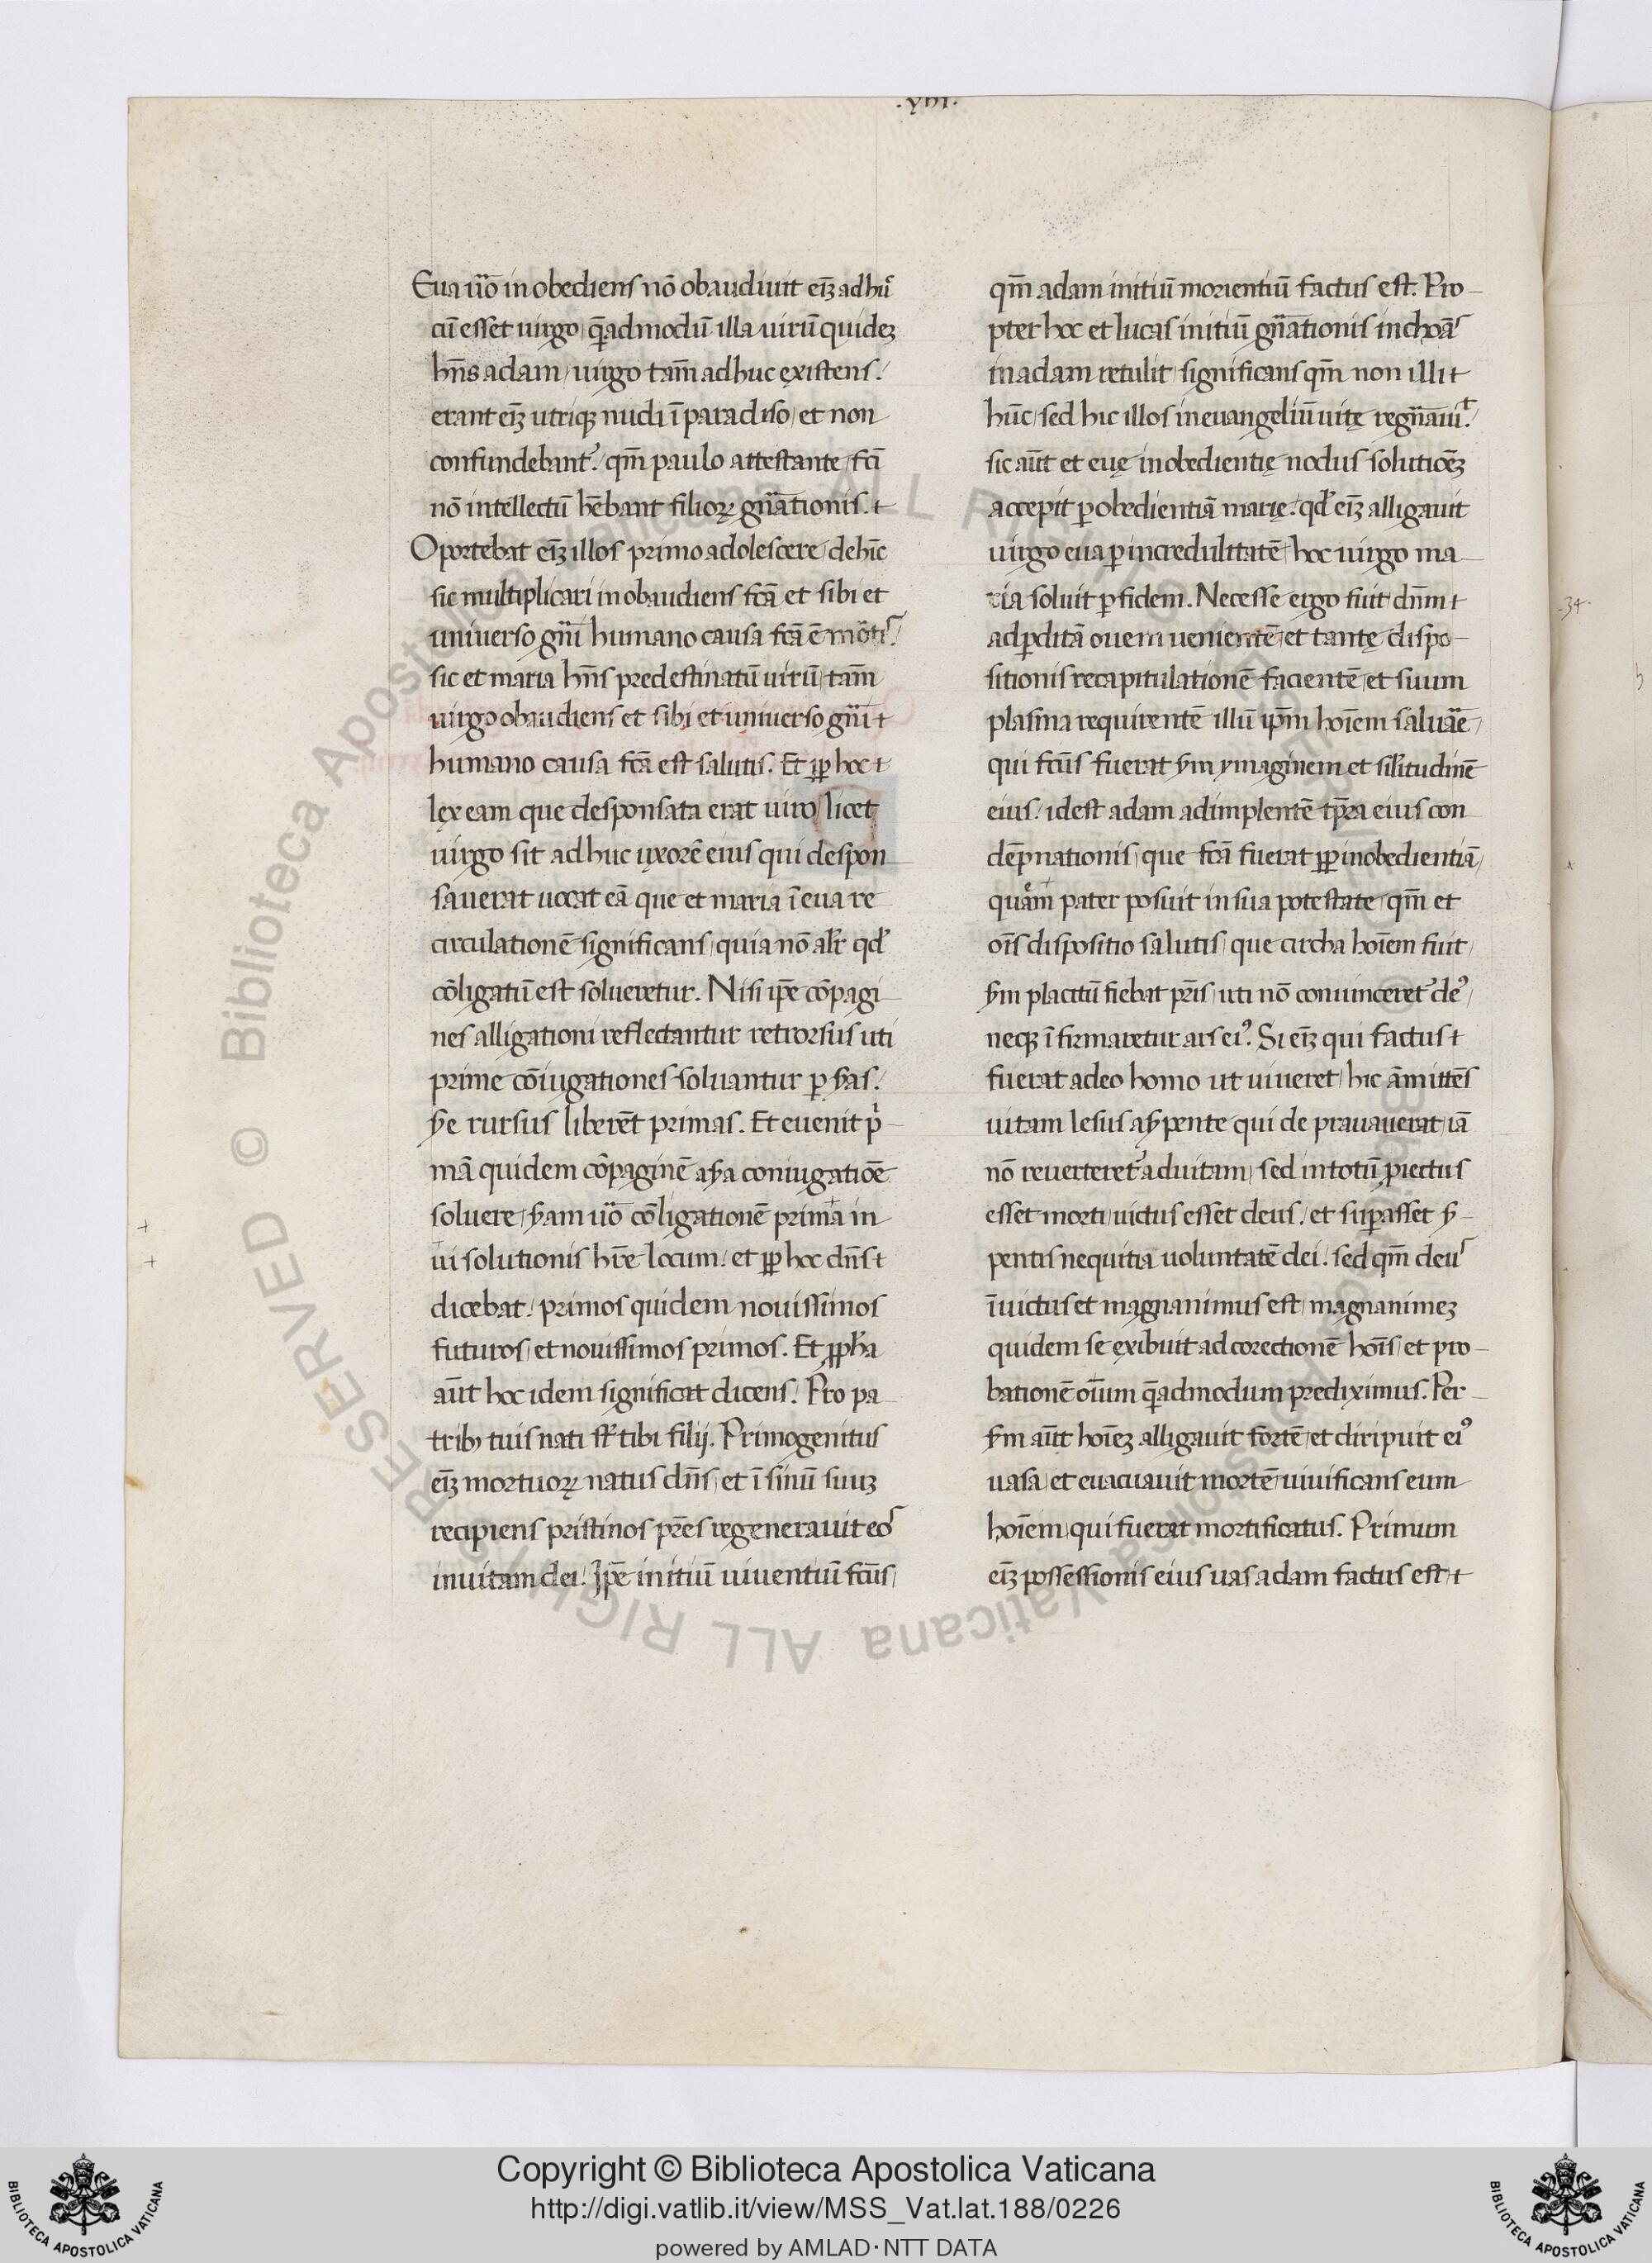 .xviii.
Eua ũo inobediens nõ obaudiuit eĩʒ adhuͨ
cũ esset uirgo / q̃admodũ illa uirũ quideʒ
hñs adam / uirgo tam̃ adhuc ęxistens /.
erant eĩʒ utriqʒ nudi ĩ paradiso / et non
confundebant᷒ /. qm̃ paulo attestante / fc̃i
nõ intellectũ hẽbant filioꝝ gñationis. +
Oportebat eĩʒ illos primo adolescere / dehĩc
sic multiplicari inobaudiens fc̃a et sibi et
uniuerso gñi humano causa fc̃a ẽ mõtis /.
sic et maria hñs predestinatũ uirũ / tam̃
uirgo obaudiens et sibi et uniuerso gñi +
humano causa fc̃a est salutis. Et ꝓp̱ hoc +
lęx eam que desponsata erat uiro / licet
uirgo sit adhuc uxorẽ eius qui despon
sauerat uocat eã que et maria ĩ eua re
circulationẽ significans / quia nõ alr̃ qď
cõligatũ est solueretur. Nisi ip̃e cõpagi
nes alligationi reflectantur retrorsus uti
prime cõiugationes soluantur ꝑ ẜas /.
ẜe rursus liberẽt primas. Et euenit pͥ
mã quidem cõpaginẽ aẜa coniugatiõe
soluere / ẜam ũo cõligationẽ prima in
ui solutionis hr̃e locum /. et ꝓp̱ hoc dñs +
dicebat /. primos quidem nouissimos
futuros / et nouissimos primos. Et ꝓph̃a
aũt hoc idem significat dicens /. Pro pa
tribʒ tuis nati sť tibi filij. Primogenitus
eĩʒ mortuoꝝ natus dñs / et ĩ sinũ suuʒ
recipiens pristinos pr̃es regenerauit eos
in uitam dei /. Ip̃e initiũ uiuentiũ fc̃us /
qm̃ adam initiũ morientiũ factus est /. Pro
pter hoc et lucas initiũ gñationis inchoãs
in adam retulit / significans qm̃ non illi +
hũc / sed hic illos in euangeliũ uitę regñauiᵗ /.
sic aũt et euę inobedientię nodus solutiõeʒ
accepit ꝑ obedientiã marię /. qď eĩʒ alligauit
uirgo eua ꝑ incredulitatẽ / hoc uirgo ma
ria soluit ꝑ fidem. Necesse ergo fuit dñm +
ad ꝑditã ouem uenientẽ / et tantę dispo
sitionis recapitulationẽ facientẽ / et suum
plasma requirentẽ illũ ip̃m hoĩem saluãe /
qui fc̃us fuerat ẜm ymaginem et silitudinẽ
eius /. idest adam adimplentẽ tp̃ra eius con
dẽpnationis / que fc̃a fuerat ꝓp̱ inobedientiã /
quam pater posuit in sua potestate / qm̃ et
oĩs dispositio salutis / que circha hoĩem fuit /
ẜm placitũ fiebat pr̃is / uti nõ conuinceret᷒ deꝰ /
neqʒ ĩfirmaretur ars eiꝰ. Si eĩʒ qui factus +
fuerat a deo homo ut uiueret / hic ãmittẽs
uitam lesus aẜpente qui de prauauerat / iã
nõ reuerteret᷒ ad uitam / sed in totũ ꝓiectus
esset morti / uictus esset deus /. et suꝑasset ẜ
pentis nequitia uoluntatẽ dei /. sed qm̃ deus
ĩuictus et magnanimus est / magnanimeʒ
quidem se ęxibuit ad corectionẽ hoĩs / et pro
bationẽ oĩum q̃admodum prediximus. Per
ẜm aũt hoĩeʒ alligauit fortẽ / et diripuit eiꝰ
uasa / et euacuauit mortẽ / uiuificans eum
hoĩem / qui fuerat mortificatus. Primum
eĩʒ possessionis eius uas adam factus est +
-34-
Copyright © Biblioteca Apostolica Vaticana
http://digi.vatlib.it/view/MSS_Vat.lat.188/0226
powered by AMLAD·NTT DATA
BIBLIOTECA APOSTOLICA VATICANA
BIBLIOTECA APOSTOLICA VATICANA
© Biblioteca Apostolica Vaticana ALL RIGHTS RESERVED
© Biblioteca Apostolica Vaticana ALL RIGHTS RESERVED